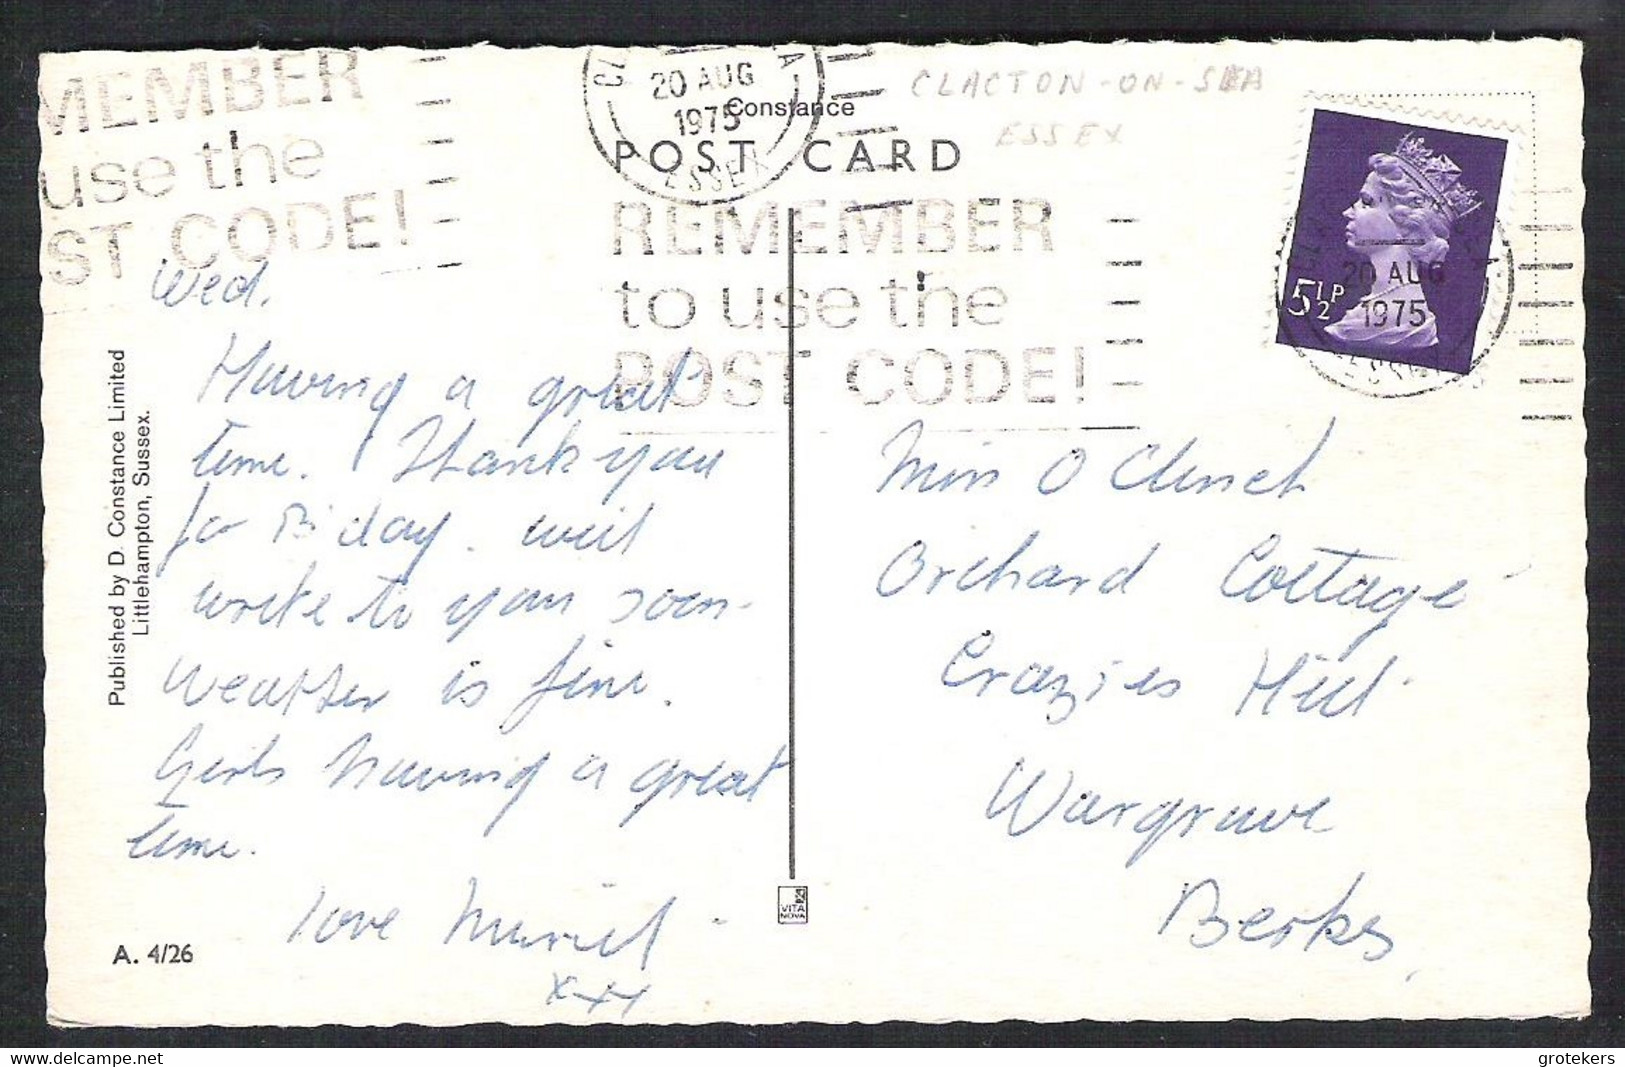 MEMBER
use the
ST CODE!
20 AUG
1975
ESSEX
Constance
POST CARD
CLACTON-ON-SEA
ESSEX
REMEMBER
to use the
POST CODE!
5½P
20 AUG
1975
Wed.
Having a great
time. Thank you
for B'day. will
write to you soon.
Weather is fine.
Girls having a great
time.
love Muriel
xxx
Miss O
Orchard Cottage
Crazies Hill
Wargrave
Berks,
Published by D. Constance Limited
Littlehampton, Sussex.
VITA
NOVA
A. 4/26
grotekers